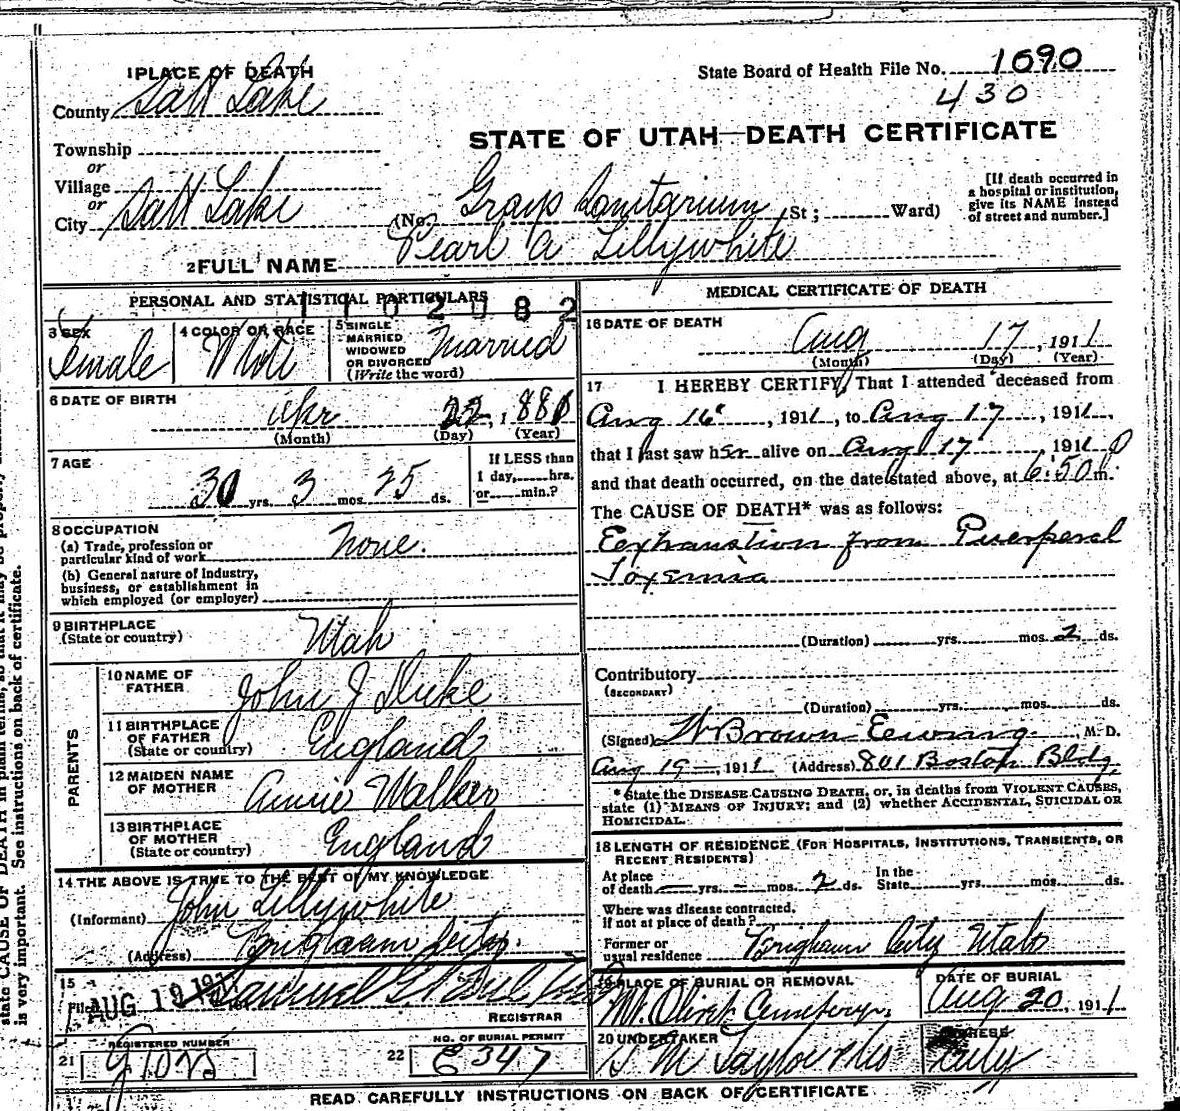 1 PLACE OF DEATH
County Salt Lake
State Board of Health File No. 1090
430
STATE OF UTAH—DEATH CERTIFICATE
Township
or
Village
or
City Salt Lake (No. Grays Sanitarium St; Ward)
[If death occurred in a hospital or institution, give its NAME instead of street and number.]
2 FULL NAME Pearl A Lillywhite
PERSONAL AND STATISTICAL PARTICULARS
102082
3 SEX Female
4 COLOR OR RACE White
5 SINGLE MARRIED WIDOWED OR DIVORCED (Write the word) Married
6 DATE OF BIRTH Apr 22, 1881
(Month) (Day) (Year)
7 AGE 30 yrs. 3 mos. 25 ds.
If LESS than 1 day, hrs. or min.?
8 OCCUPATION
(a) Trade, profession or particular kind of work None.
(b) General nature of industry, business, or establishment in which employed (or employer)
9 BIRTHPLACE (State or country) Utah
PARENTS
10 NAME OF FATHER John J Duke
11 BIRTHPLACE OF FATHER (State or country) England
12 MAIDEN NAME OF MOTHER Annie Walker
13 BIRTHPLACE OF MOTHER (State or country) England
14 THE ABOVE IS TRUE TO THE BEST OF MY KNOWLEDGE
(Informant) John Lillywhite
(Address) Brigham City.
15 Filed AUG 19 1911 Samuel G.
REGISTRAR
REGISTERED NUMBER
21
NO. OF BURIAL PERMIT
22 E347
MEDICAL CERTIFICATE OF DEATH
16 DATE OF DEATH Aug 17, 1911
(Month) (Day) (Year)
17 I HEREBY CERTIFY, That I attended deceased from
Aug 16, 1911, to Aug 17, 1911,
that I last saw her alive on Aug 17 1911
and that death occurred, on the date stated above, at 6:50 P m.
The CAUSE OF DEATH* was as follows:
Exhaustion from Puerperal
Toxemia
(Duration) yrs. mos. 2 ds.
Contributory
(SECONDARY)
(Duration) yrs. mos. ds.
(Signed) W Brown Ewing, M.D.
Aug 19, 1911 (Address) 801 Boston Bldg.
* State the DISEASE CAUSING DEATH, or, in deaths from VIOLENT CAUSES, state (1) MEANS OF INJURY; and (2) whether ACCIDENTAL, SUICIDAL OR HOMICIDAL.
18 LENGTH OF RESIDENCE (FOR HOSPITALS, INSTITUTIONS, TRANSIENTS, OR RECENT RESIDENTS)
At place of death — yrs. — mos. 2 ds. In the State yrs. mos. ds.
Where was disease contracted, if not at place of death?
Former or usual residence Brigham City Utah
19 PLACE OF BURIAL OR REMOVAL Mt. Olivet Cemetery.
DATE OF BURIAL Aug 20, 1911
20 UNDERTAKER S M Taylor
ADDRESS City
READ CAREFULLY INSTRUCTIONS ON BACK OF CERTIFICATE
is very important. See instructions on back of certificate.